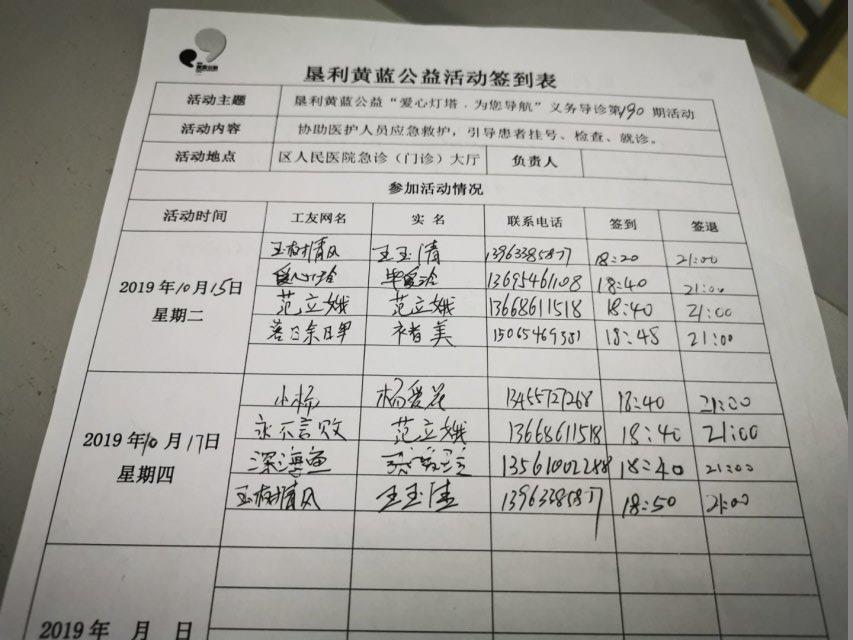 垦利黄蓝公益活动签到表
活动主题 垦利黄蓝公益“爱心灯塔．为您导航”义务导诊第190期活动
活动内容 协助医护人员应急救护，引导患者挂号、检查、就诊。
活动地点 区人民医院急诊（门诊）大厅 负责人
参加活动情况
活动时间 工友网名 实 名 联系电话 签到 签退
2019年10月15日
星期二
玉树清风 王玉清 13963385877 18:20 21:00
13695461108 18:40 21:00
范立娥 范立娥 13668611518 18:40 21:00
美 15065469381 18:48 21:00
2019年10月17日
星期四
杨爱花 13455727268 18:40 21:00
永不言败 范立娥 13668611518 18:40 21:00
深海鱼 13561002288 18:40 21:00
玉树清风 王玉清 13963385877 18:50 21:00
2019年 月 日